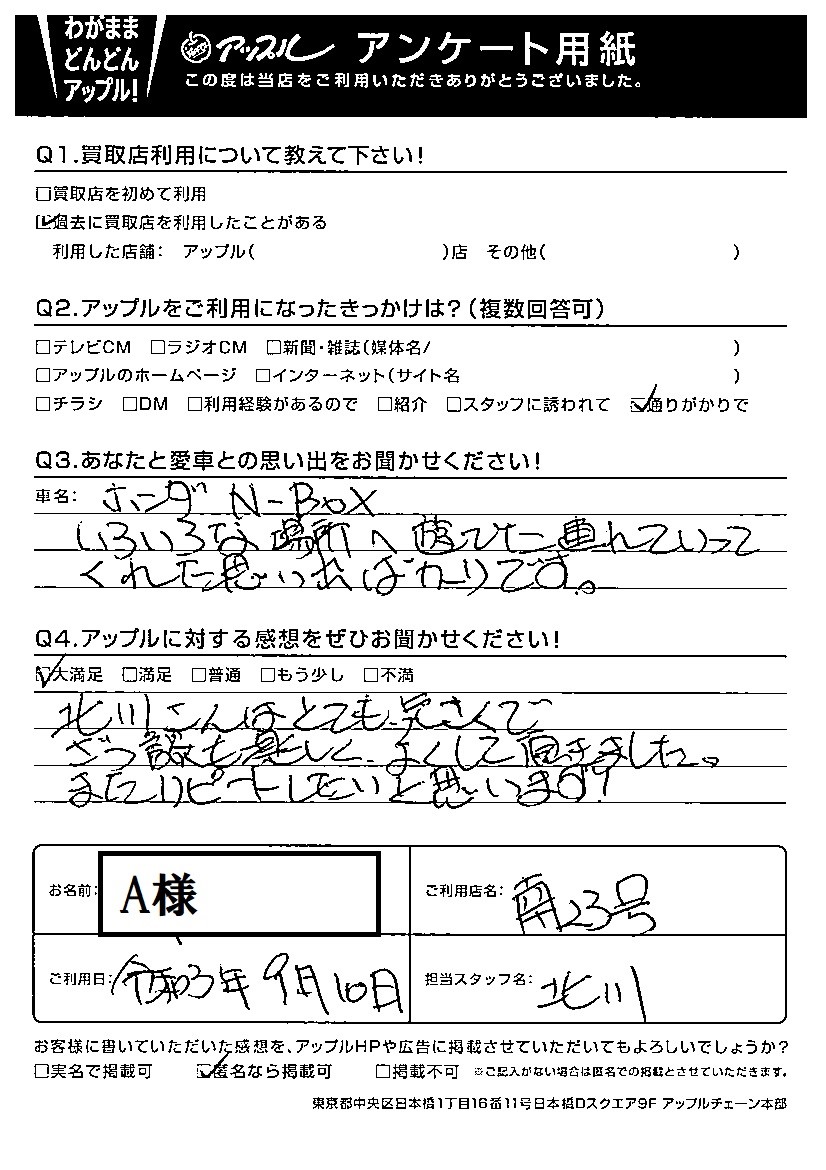 わがまま
どんどん
アップル!
アップル アンケート用紙
この度は当店をご利用いただきありがとうございました。
Q1.買取店利用について教えて下さい!
□買取店を初めて利用
☑過去に買取店を利用したことがある
利用した店舗: アップル( )店 その他( )
Q2.アップルをご利用になったきっかけは?(複数回答可)
□テレビCM □ラジオCM □新聞・雑誌(媒体名/ )
□アップルのホームページ □インターネット(サイト名 )
□チラシ □DM □利用経験があるので □紹介 □スタッフに誘われて ☑通りがかりで
Q3.あなたと愛車との思い出をお聞かせください!
車名: ホンダ N-BOX
いろいろな場所へ 連れていって
くれた思い出ばかりです。
Q4.アップルに対する感想をぜひお聞かせください!
☑大満足 □満足 □普通 □もう少し □不満
北川さんはとても気さくで
ざつ談も楽しく よくして頂きました。
またリピートしたいと思います!
お名前: A様
ご利用店名: 南23号
ご利用日: 令和3年9月10日
担当スタッフ名: 北川
お客様に書いていただいた感想を、アップルHPや広告に掲載させていただいてもよろしいでしょうか?
□実名で掲載可 ☑匿名なら掲載可 □掲載不可 ※ご記入がない場合は匿名での掲載とさせていただきます。
東京都中央区日本橋1丁目16番11号日本橋Dスクエア9F アップルチェーン本部